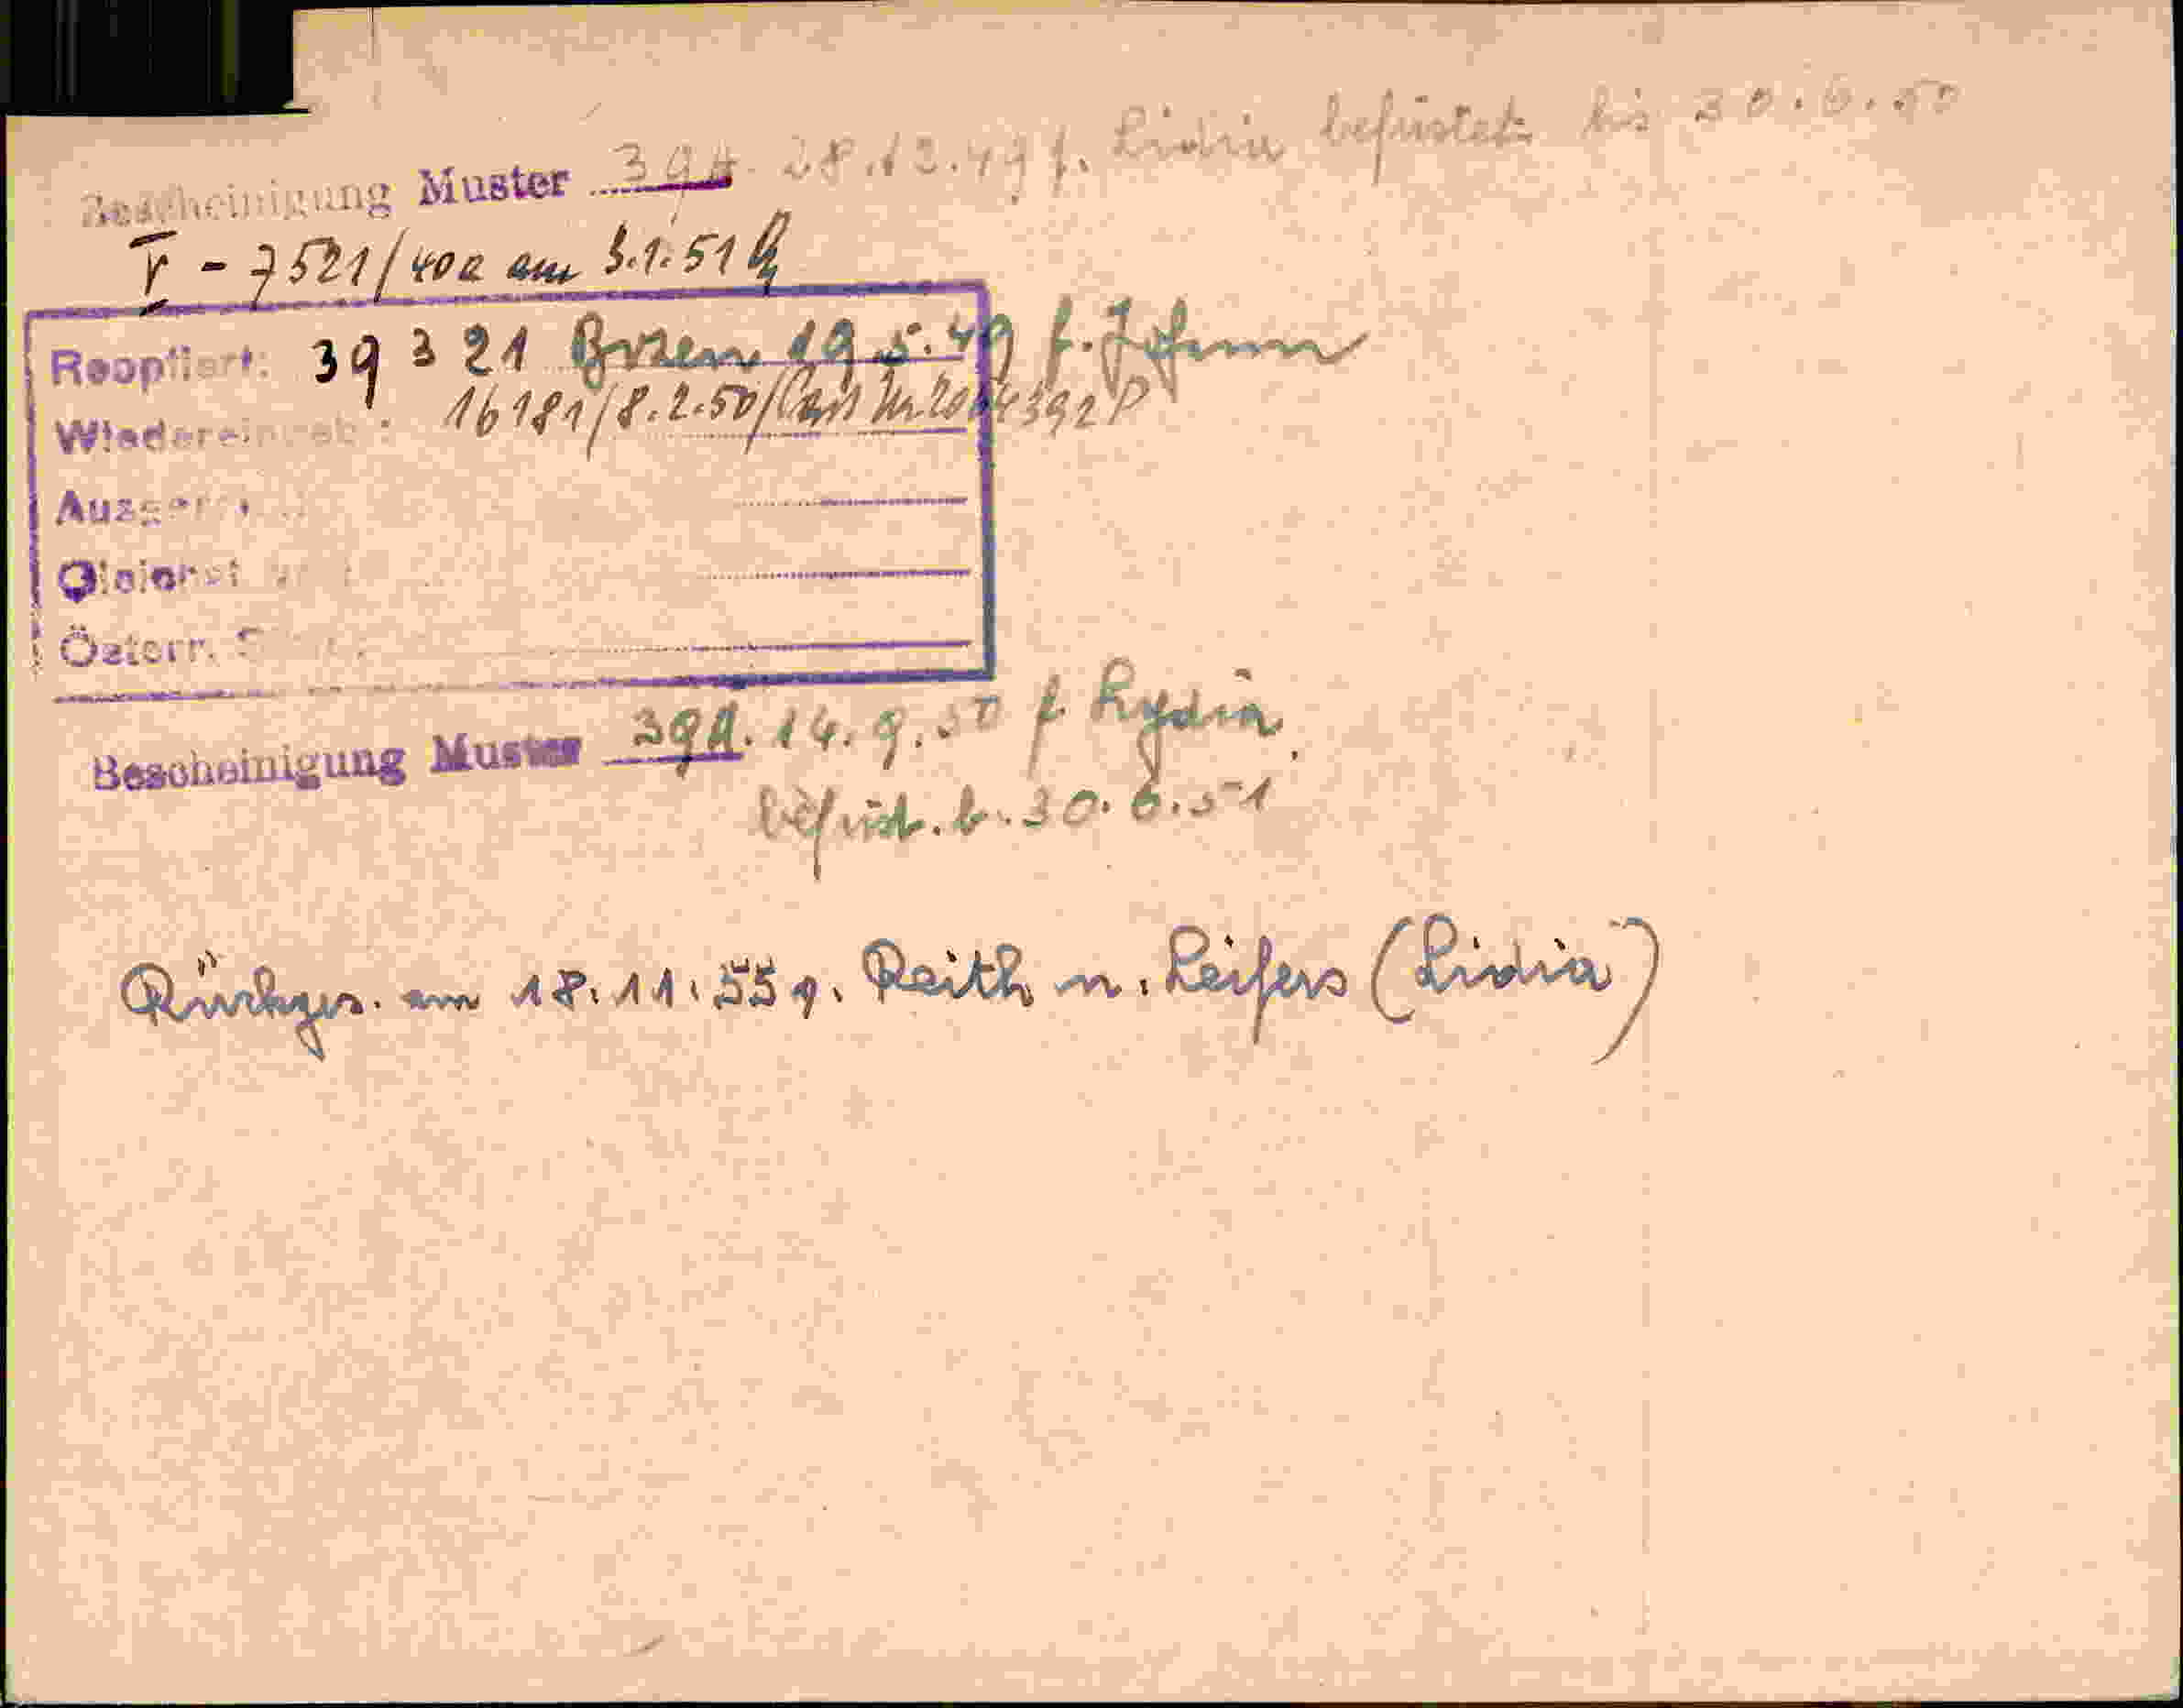 Bescheinigung Muster 39A. 28.12.49 f. Lidia befristet bis 30.6.50
V - 7521/40a am 3.1.51
Reoptiert: 39321 Bozen 19.5.49 f. Johann
Wiedereingeb.: 16181/8.2.50/Pass Nr. 2064392 P
Österr.
Bescheinigung Muster 39A. 14.9.50 f. Lydia.
befrist. b. 30.6.51
Rückges. am 18.11.55 v. Reith n. Leifers (Lidia)